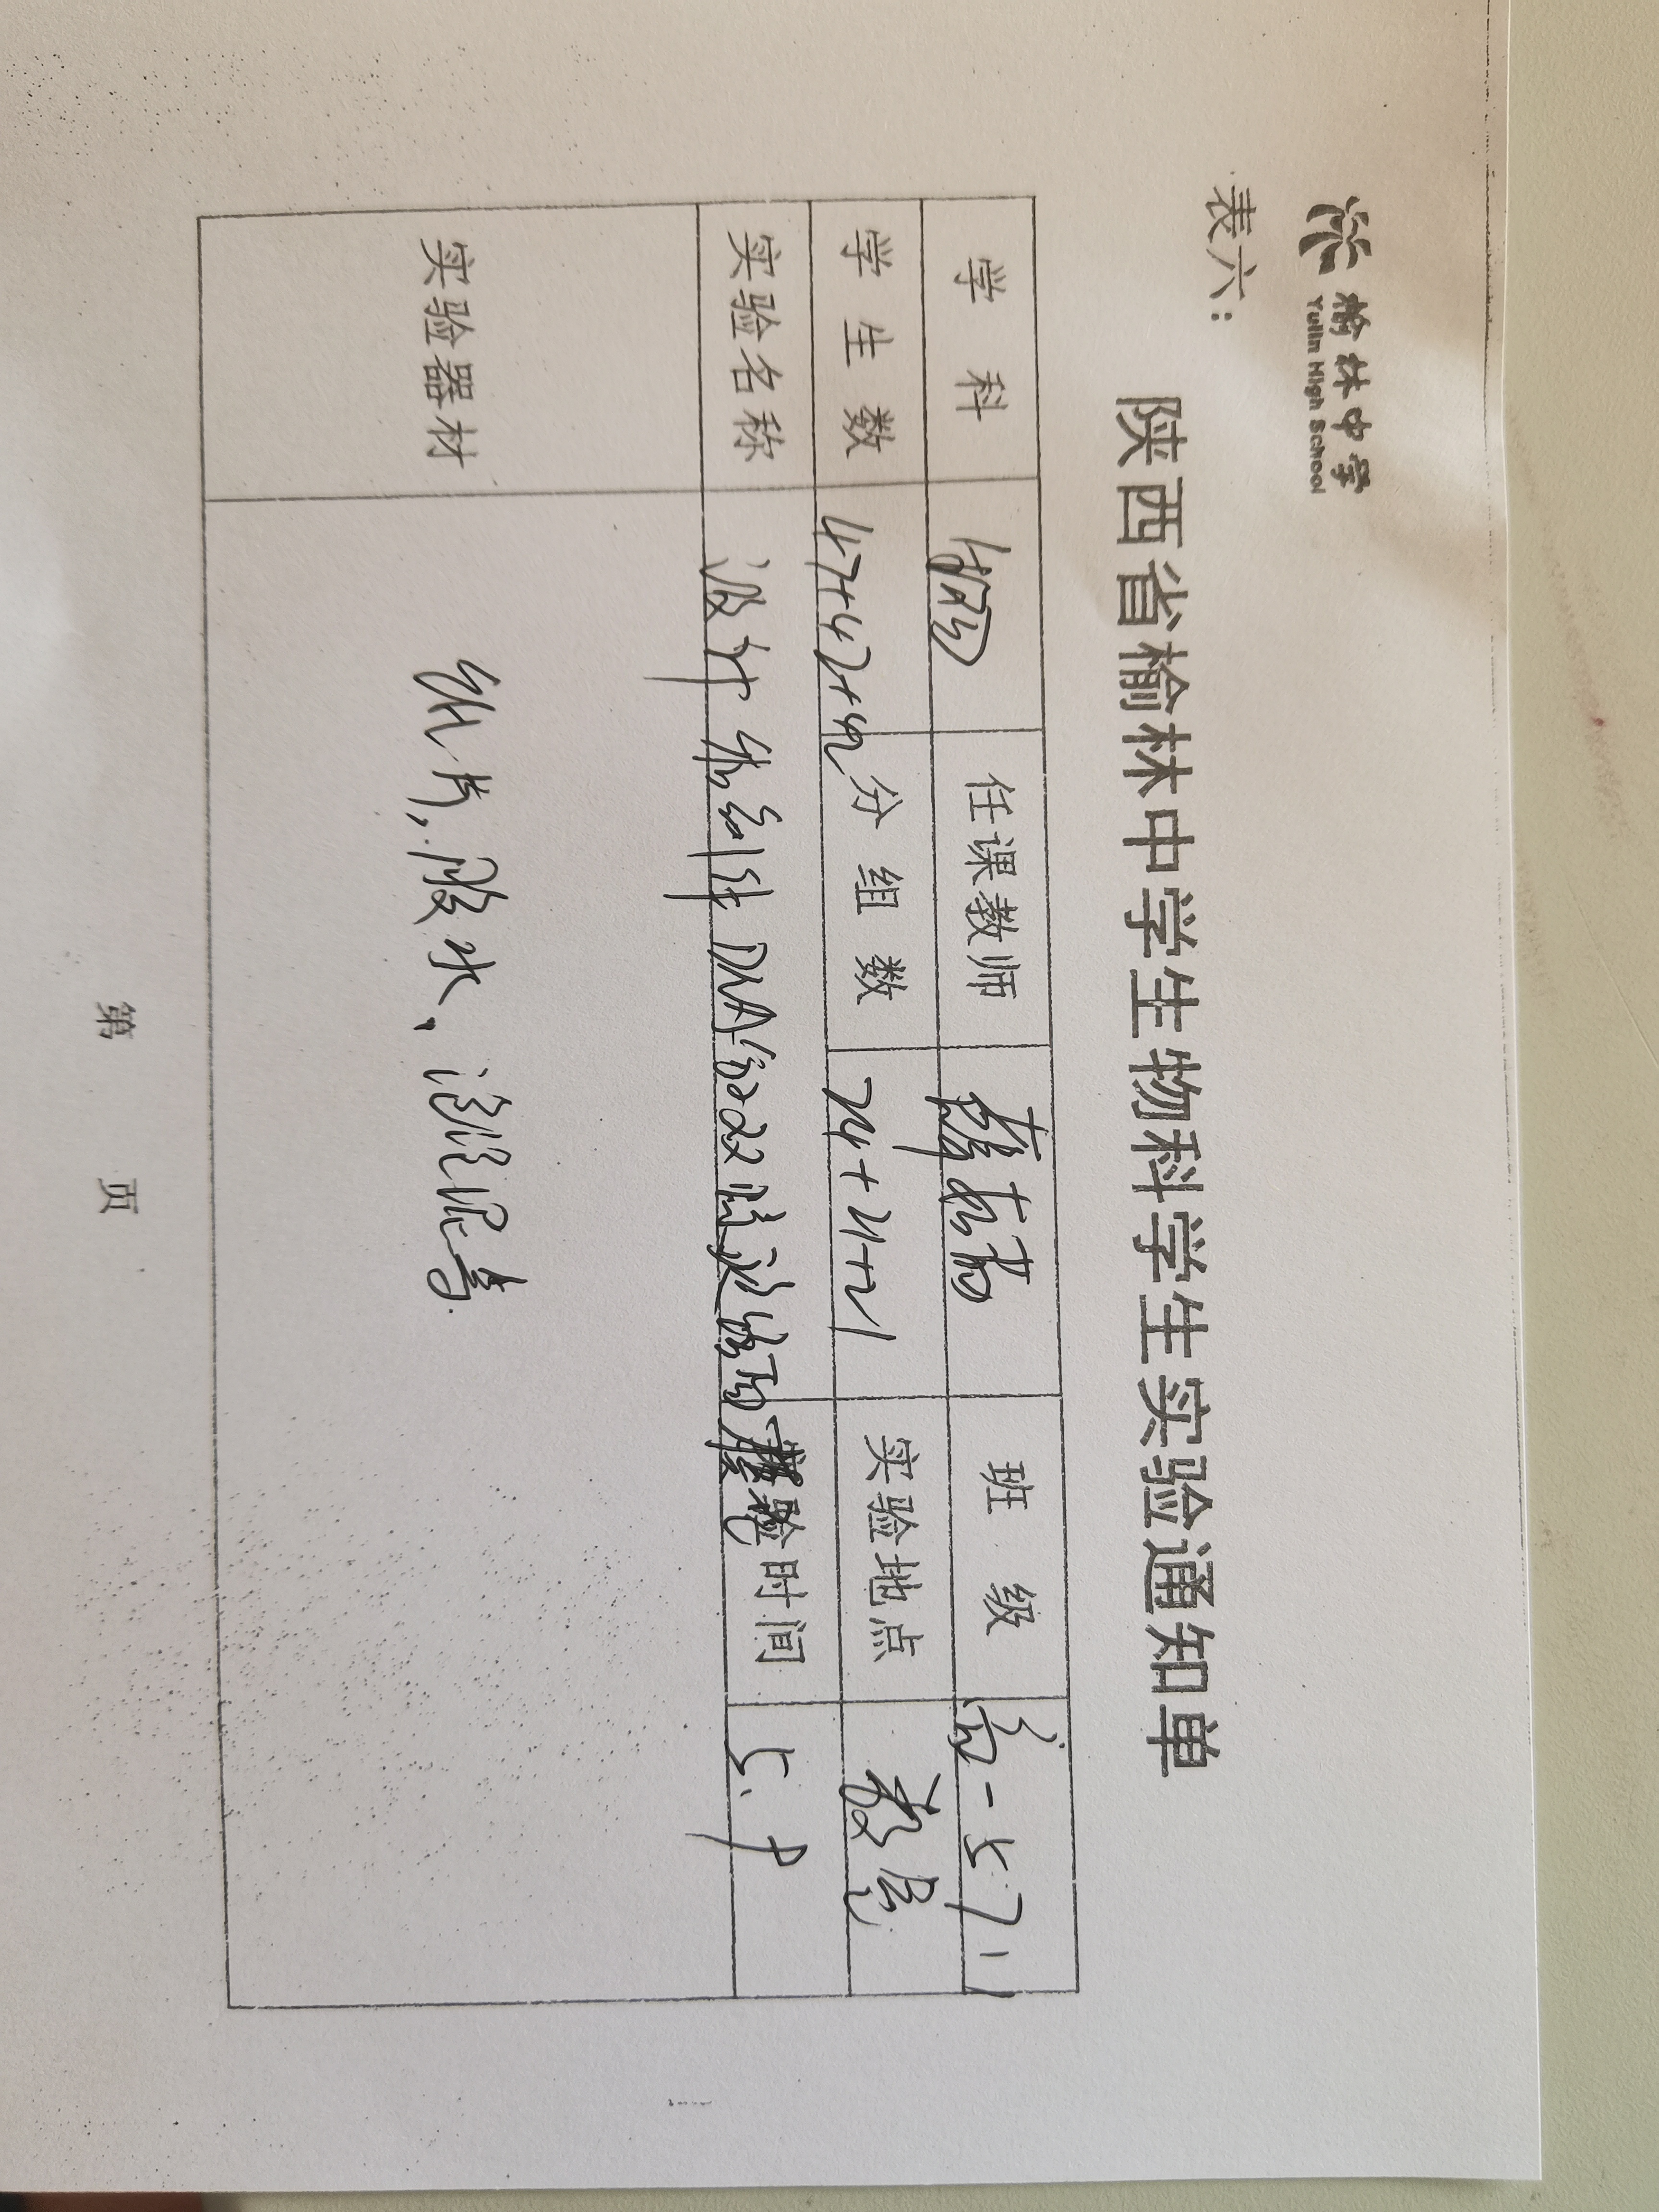 榆林中学
Yulin High School
表六:
陕西省榆林中学学生物科学生实验通知单
学 科 生物 任课教师 班 级 高一 5.7.11
学 生 数 47+47+42 分 组 数 24+21+21 实验地点 教室
实验名称 设计 制作 DNA 双 模型 实验时间 5.9
实验器材 纸片,胶水、泡泡泥等.
第 页